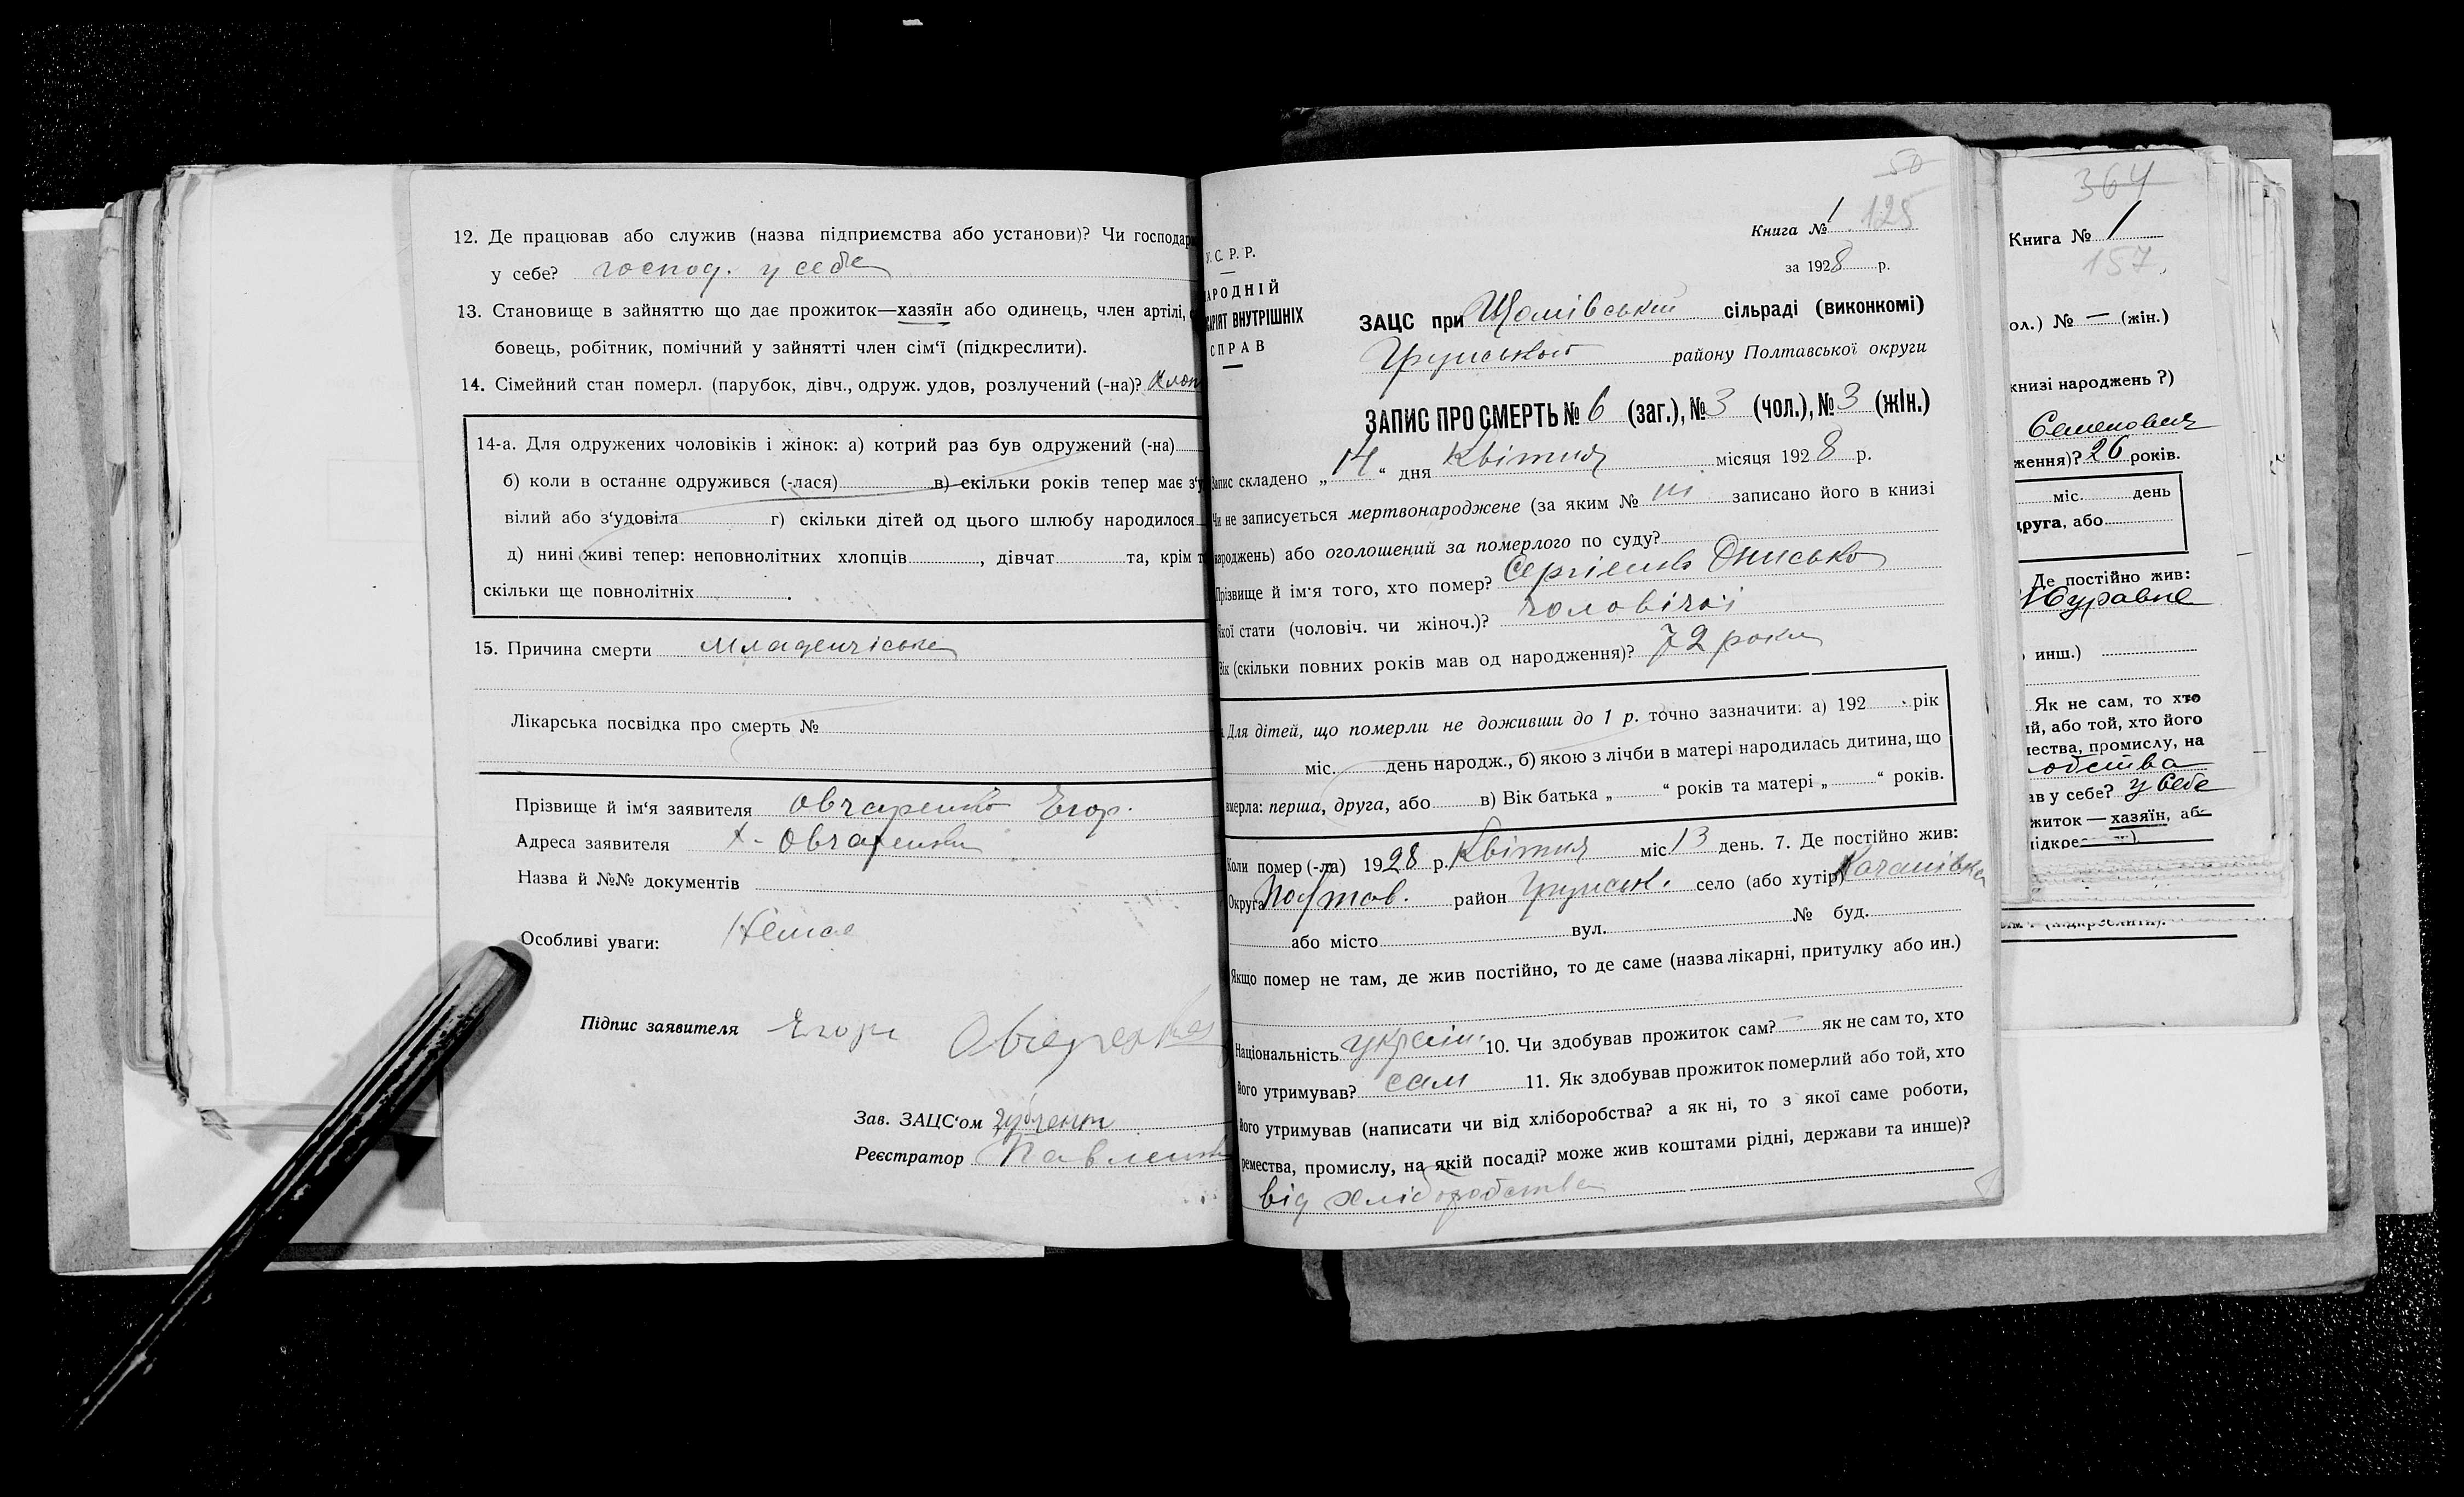 12. Де працював або служив (назва підприємства або установи)? Чи господар
у себе? господ. у себе
13. Становище в зайняттю що дає прожиток—хазяїн або одинець, член артілі,
бовець, робітник, помічний у зайнятті член сім'ї (підкреслити).
14. Сімейний стан померл. (парубок, дівч., одруж. удов, розлучений (-на)? хлоп
14-а. Для одружених чоловіків і жінок: а) котрий раз був одружений (-на)
б) коли в останнє одружився (-лася) в) скільки років тепер має з'у
вілий або з'удовіла г) скільки дітей од цього шлюбу народилося
д) нині живі тепер: неповнолітних хлопців , дівчат та, крім т
скільки ще повнолітніх .
15. Причина смерти Младенчіська
Лікарська посвідка про смерть №
Прізвище й ім'я заявителя Овчаренко Егор.
Адреса заявителя х. Овчаренки
Назва й №№ документів
Особливі уваги: Немае
Підпис заявителя Егор Овчаренко
Зав. ЗАЦС'ом
Реєстратор Павленко
50
Книга № 1 125
У. С. Р. Р.
за 1928 р.
АРОДНІЙ
САРІЯТ ВНУТРІШНІХ
СПРАВ
ЗАЦС при сільраді (виконкомі)
Грунського району Полтавської округи
ЗАПИС ПРО СМЕРТЬ № 6 (заг.), № 3 (чол.), № 3 (жін.)
Запис складено „ 14 “ дня Квітня місяця 1928 р.
Чи не записується мертвонароджене (за яким № ні записано його в книзі
народжень) або оголошений за померлого по суду?
Прізвище й ім'я того, хто помер? Сергіенко Онисько
Якої стати (чоловіч. чи жіноч.)? чоловічої
Вік (скільки повних років мав од народження)? 72 роки
Для дітей, що померли не доживши до 1 р. точно зазначити: а) 192 рік
міс. день народж., б) якою з лічби в матері народилась дитина, що
вмерла: перша, друга, або в) Вік батька „ “ років та матері „ “ років.
Коли помер (-ла) 1928 р. Квітня міс 13 день. 7. Де постійно жив:
Округа Полтав. район Грунськ. село (або хутір) Качанівка
або місто вул. № буд.
Якщо помер не там, де жив постійно, то де саме (назва лікарні, притулку або ин.)
Національність україн. 10. Чи здобував прожиток сам? — як не сам то, хто
його утримував? сам 11. Як здобував прожиток померлий або той, хто
його утримував (написати чи від хліборобства? а як ні, то з якої саме роботи,
ремества, промислу, на якій посаді? може жив коштами рідні, держави та инше)?
від хліборобства
364
Книга № 1
157.
ол.) № — (жін.)
книзі народжень ?)
Семенович
ження)? 26 років.
міс. день
друга, або
Де постійно жив:
Журавне
инш.)
Як не сам, то хто
ий, або той, хто його
мества, промислу, на
ав у себе? у себе
житок — хазяїн, аб
підкре